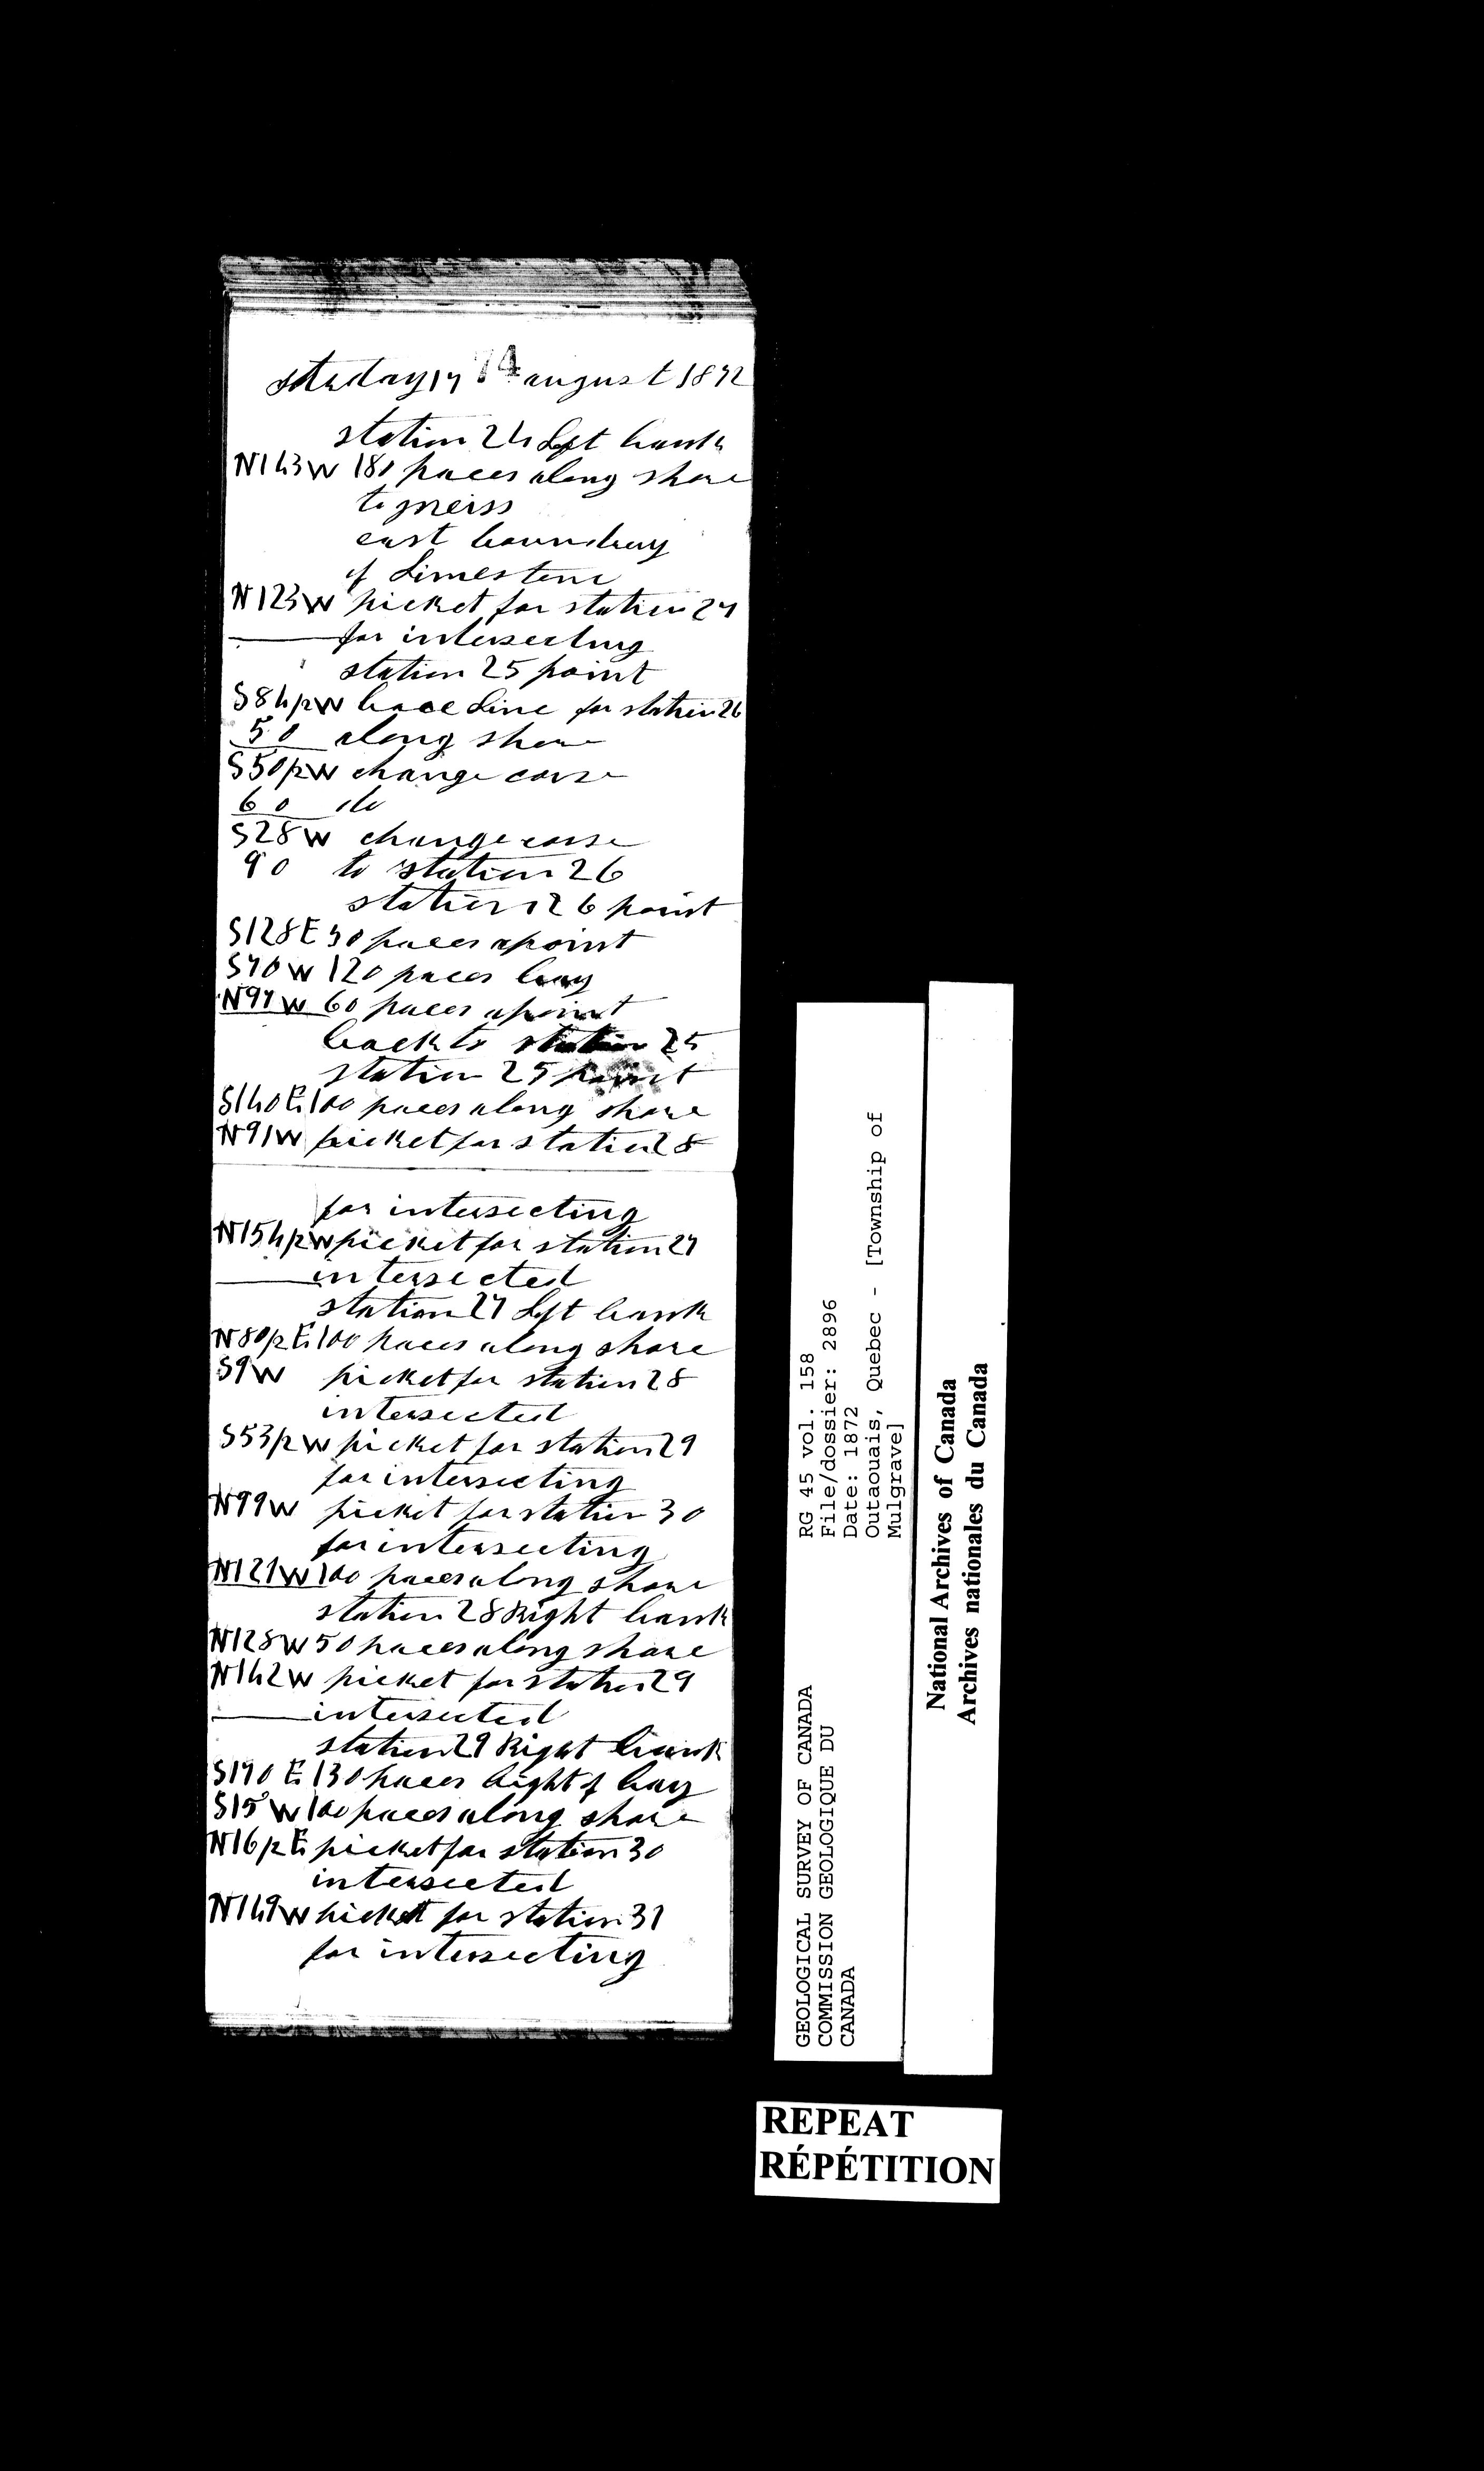 satuday 17 74 august 1872
station 24 Left bank
N143W 180 paces along shore
to gneiss
east boundray
of Limestone
N123W picket for station 27
for intersecting
station 25 point
S84½W base Line for station 26
50 along shore
S50½W change corse
60 do
S28W change corse
90 to station 26
station 26 point
S128E 30 paces apoint
S70W 120 paces bay
N97W 60 paces apoint
back to station 25
station 25 point
S140E 100 paces along shore
N91W picket for station 28
for intersecting
N154½W picket for station 27
intersected
station 27 Left bank
N80½E 100 paces along shore
S9W picket for station 28
intersected
S53½W picket for station 29
for intersecting
N99W picket for station 30
for intersecting
N121W 100 paces along shore
station 28 Right bank
N128W 50 paces along shore
N142W picket for station 29
intersected
station 29 Right bank
S170E 130 paces hight of bay
S15W 100 paces along shore
N16½E picket for station 30
intersected
N149W picket for station 31
for intersecting
GEOLOGICAL SURVEY OF CANADA RG 45 vol. 158
COMMISSION GEOLOGIQUE DU File/dossier: 2896
CANADA Date: 1872
Outaouais, Quebec - [Township of
Mulgrave]
National Archives of Canada
Archives nationales du Canada
REPEAT
RÉPÉTITION